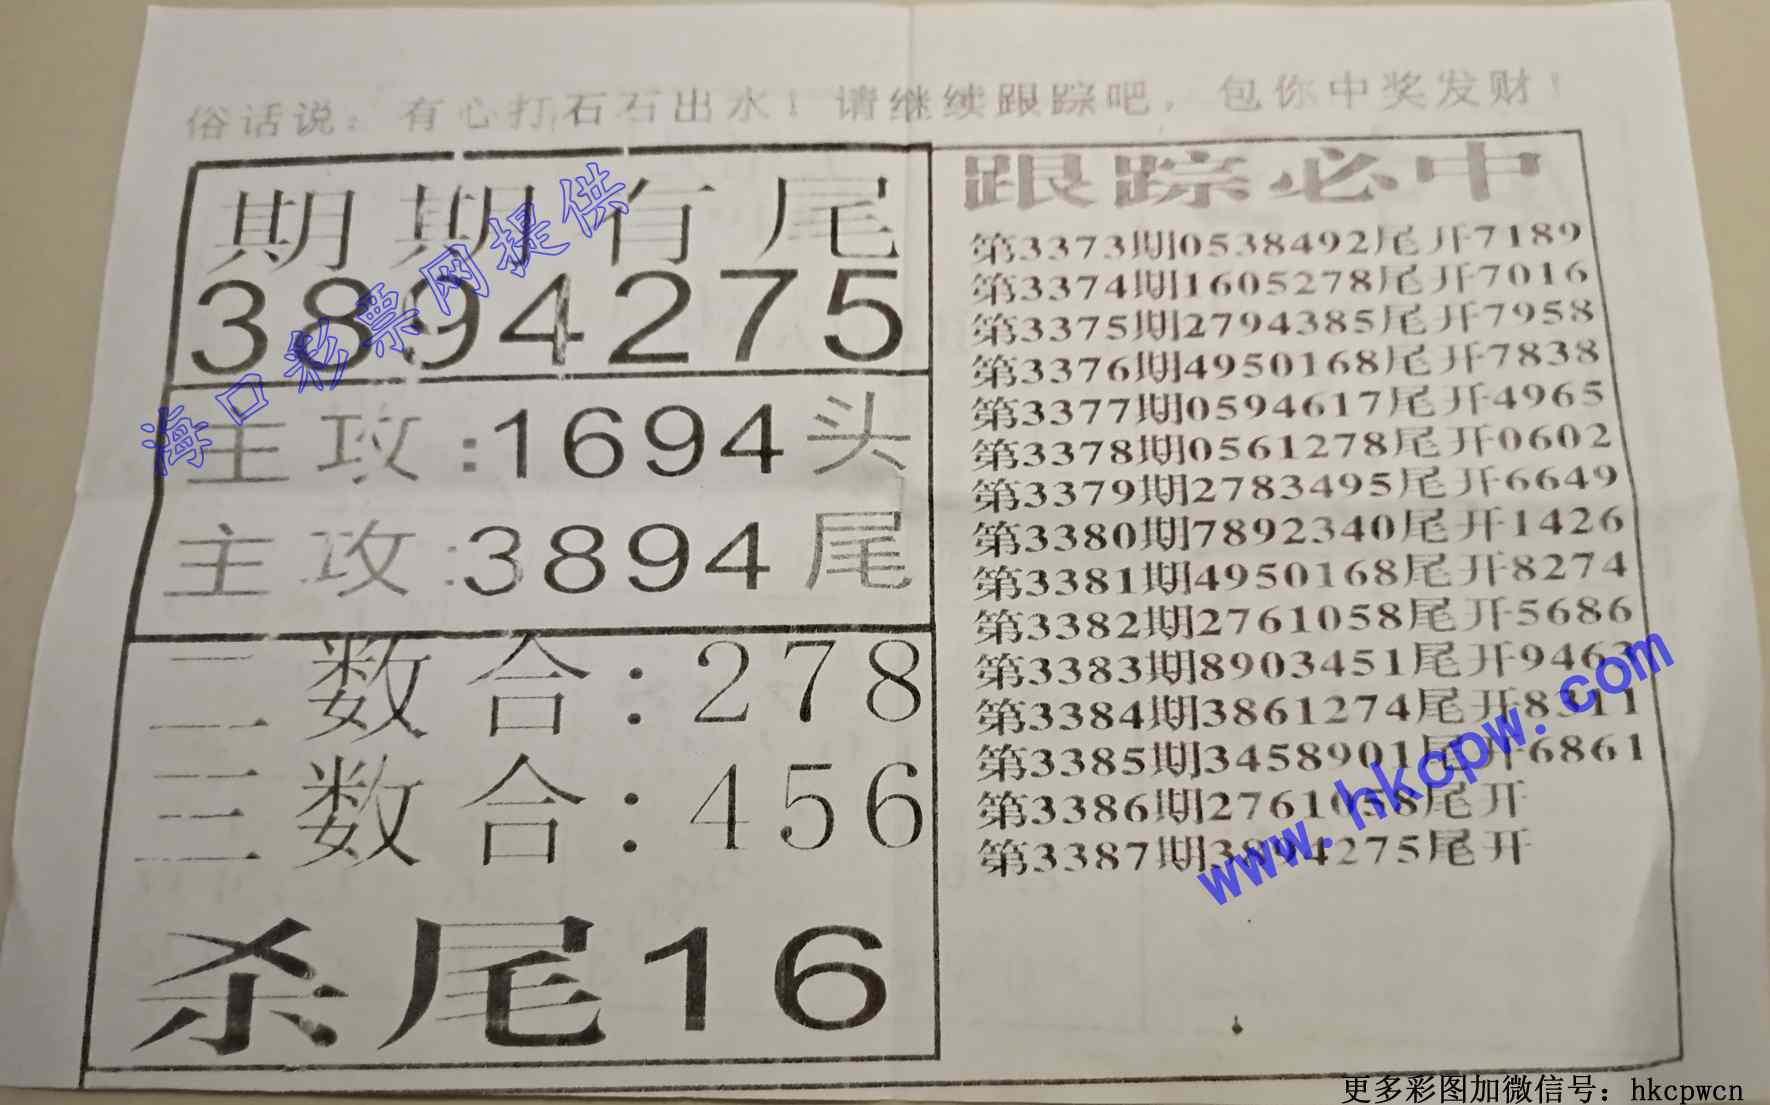 俗话说：有心打石石出水！请继续跟踪吧，包你中奖发财！
期期有尾
3894275
主攻:1694头
主攻:3894尾
二数合:278
三数合:456
杀尾16
跟踪必中
第3373期0538492尾开7189
第3374期1605278尾开7016
第3375期2794385尾开7958
第3376期4950168尾开7838
第3377期0594617尾开4965
第3378期0561278尾开0602
第3379期2783495尾开6649
第3380期7892340尾开1426
第3381期4950168尾开8274
第3382期2761058尾开5686
第3383期8903451尾开9463
第3384期3861274尾开8311
第3385期3458901尾开6861
第3386期2761058尾开
第3387期3894275尾开
海口彩票网提供
www.hkcpw.com
更多彩图加微信号：hkcpwcn